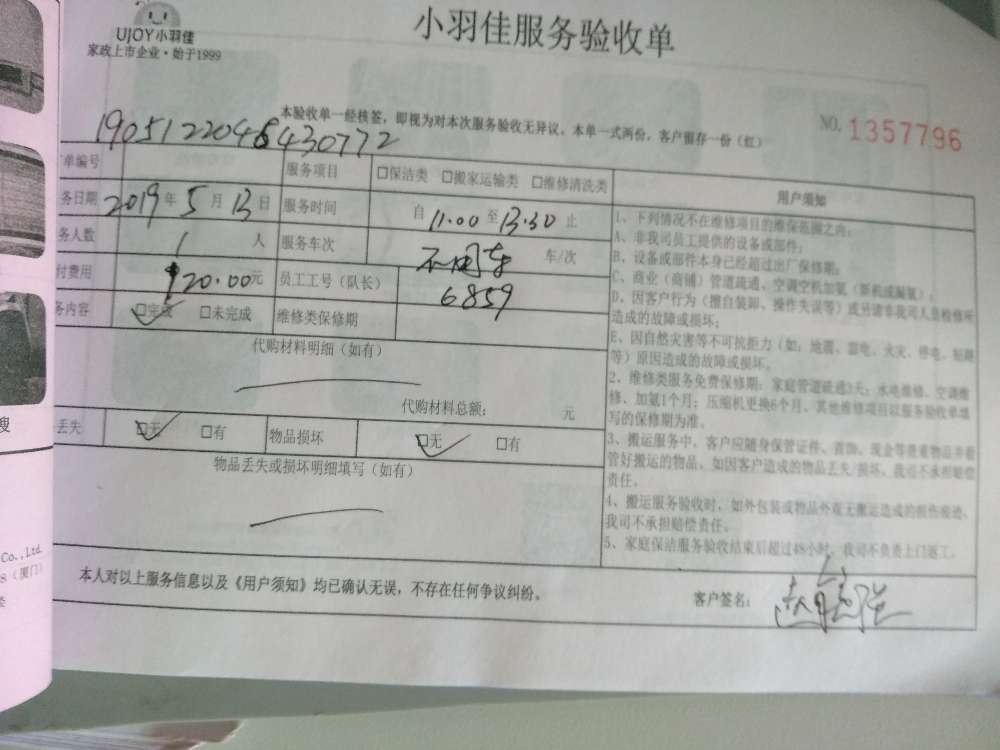 UJOY小羽佳
家政上市企业·始于1999
小羽佳服务验收单
本验收单一经核签，即视为对本次服务验收无异议。本单一式两份，客户留存一份（红）
NO. 1357796
单编号 19051220468430772 服务项目 □保洁类 □搬家运输类 □维修清洗类
务日期 2019年5月13日 服务时间 自11.00至13.30止
务人数 1人 服务车次 不用车 车/次
付费用 120.00元 员工工号（队长） 6859
务内容 □完成 □未完成 维修类保修期
代购材料明细（如有）
代购材料总额： 元
丢失 □无 □有 物品损坏 □无 □有
物品丢失或损坏明细填写（如有）
用户须知
1、下列情况不在维修项目的维保范围之内：
A、非我司员工提供的设备或部件；
B、设备或部件本身已经超过出厂保修期；
C、商业（商铺）管道疏通、空调空机加氟（新机或漏氟）；
D、因客户行为（擅自装卸、操作失误等）或另请非我司人员检修所
造成的故障或损坏；
E、因自然灾害等不可抗拒力（如：地震、雷电、火灾、停电、短路
等）原因造成的故障或损坏。
2、维修类服务免费保修期：家庭管道疏通3天；水电维修、空调维
修、加氟1个月；压缩机更换6个月、其他维修项目以服务验收单填
写的保修期为准。
3、搬运服务中，客户应随身保管证件、首饰、现金等贵重物品并看
管好搬运的物品，如因客户造成的物品丢失/损坏，我司不承担赔偿
责任。
4、搬运服务验收时，如外包装或物品外观无搬运造成的损伤痕迹，
我司不承担赔偿责任。
5、家庭保洁服务验收结束后超过48小时，我司不负责上门返工。
本人对以上服务信息以及《用户须知》均已确认无误，不存在任何争议纠纷。
客户签名：
Co., Ltd.
8（厦门）